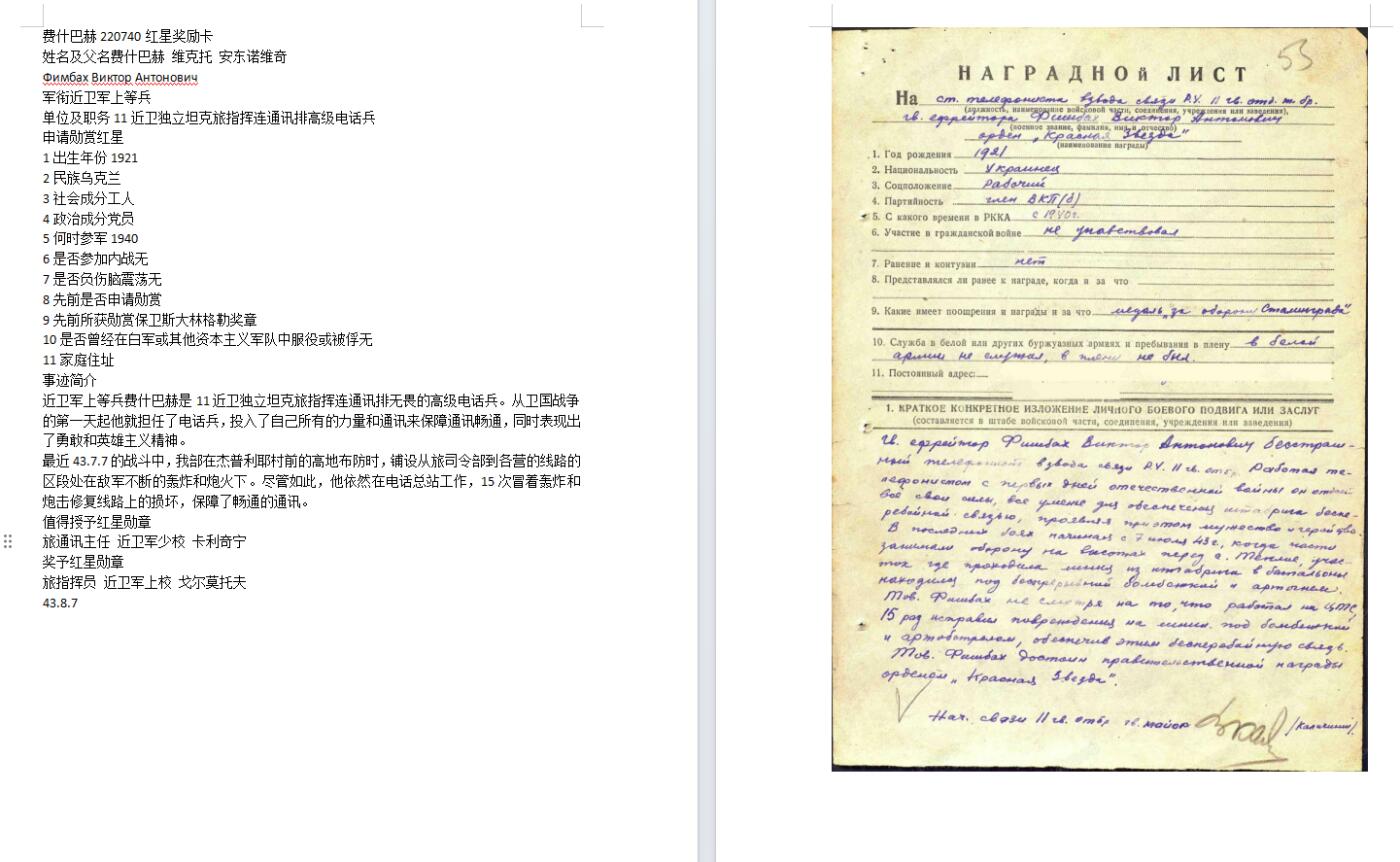 费什巴赫 220740 红星奖励卡
姓名及父名费什巴赫 维克托 安东诺维奇
Фимбах Виктор Антонович
军衔近卫军上等兵
单位及职务 11 近卫独立坦克旅指挥连通讯排高级电话兵
申请勋赏红星
1 出生年份 1921
2 民族乌克兰
3 社会成分工人
4 政治成分党员
5 何时参军 1940
6 是否参加内战无
7 是否负伤脑震荡无
8 先前是否申请勋赏
9 先前所获勋赏保卫斯大林格勒奖章
10 是否曾经在白军或其他资本主义军队中服役或被俘无
11 家庭住址
事迹简介
近卫军上等兵费什巴赫是 11 近卫独立坦克旅指挥连通讯排无畏的高级电话兵。从卫国战争
的第一天起他就担任了电话兵，投入了自己所有的力量和通讯来保障通讯畅通，同时表现出
了勇敢和英雄主义精神。
最近 43.7.7 的战斗中，我部在杰普利耶村前的高地布防时，铺设从旅司令部到各营的线路的
区段处在敌军不断的轰炸和炮火下。尽管如此，他依然在电话总站工作，15 次冒着轰炸和
炮击修复线路上的损坏，保障了畅通的通讯。
值得授予红星勋章
旅通讯主任 近卫军少校 卡利奇宁
奖予红星勋章
旅指挥员 近卫军上校 戈尔莫托夫
43.8.7
53
НАГРАДНОЙ ЛИСТ
На ст. телефониста взвода связи Р.У. 11 гв. отд. т. бр.
(должность, наименование войсковой части, соединения, учреждения или заведения),
гв. ефрейтора Фишбах Виктор Антонович
(военное звание, фамилия, имя и отчество)
орден „Красная Звезда"
(наименование награды)
1. Год рождения 1921
2. Национальность Украинец
3. Соцположение Рабочий
4. Партийность член ВКП(б)
5. С какого времени в РККА с 1940г.
6. Участие в гражданской войне не учавствовал
7. Ранение и контузии нет
8. Представлялся ли ранее к награде, когда и за что
9. Какие имеет поощрения и награды и за что медаль „за оборону Сталинграда"
10. Служба в белой или других буржуазных армиях и пребывания в плену в белой
армии не служил, в плену не был.
11. Постоянный адрес:
1. КРАТКОЕ КОНКРЕТНОЕ ИЗЛОЖЕНИЕ ЛИЧНОГО БОЕВОГО ПОДВИГА ИЛИ ЗАСЛУГ
(составляется в штабе войсковой части, соединения, учреждения или заведения)
Гв. ефрейтор Фишбах Виктор Антонович бесстраш-
ный телефонист взвода связи Р.У. 11 гв. отбр. Работая те-
лефонистом с первых дней отечественной войны он отдает
все свои силы, все умение для обеспечения штабрига беспе-
ребойной связью, проявляя при этом мужество и геройство.
В последних боях начиная с 7 июля 43 г, когда части
занимали оборону на высотах перед с. Теплие, учас-
ток где проходила линия из штабрига в батальоны
находился под беспрерывной бомбежкой и артогнем.
Тов. Фишбах не смотря на то, что работал на ЦТС,
15 раз исправлял повреждения на линии под бомбежкой
и артобстрелом, обеспечив этим бесперебойную связь.
Тов. Фишбах достоин правительственной награды
орденом „Красная Звезда".
Нач. связи 11 гв. отбр гв. майор